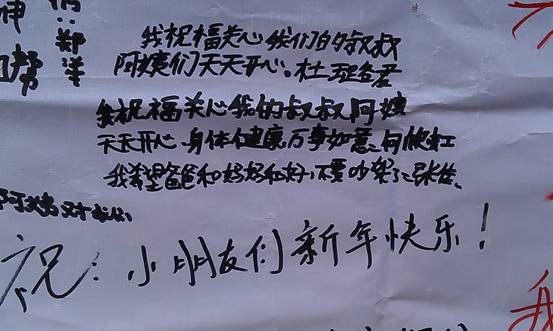 郑洋
我祝福关心我们的叔叔
阿姨们天天开心。杜
我祝福关心我的叔叔阿姨
天天开心、身体健康、万事如意。何
我希望爸爸和妈妈和好，不要吵架了。张佳
祝：小朋友们新年快乐！